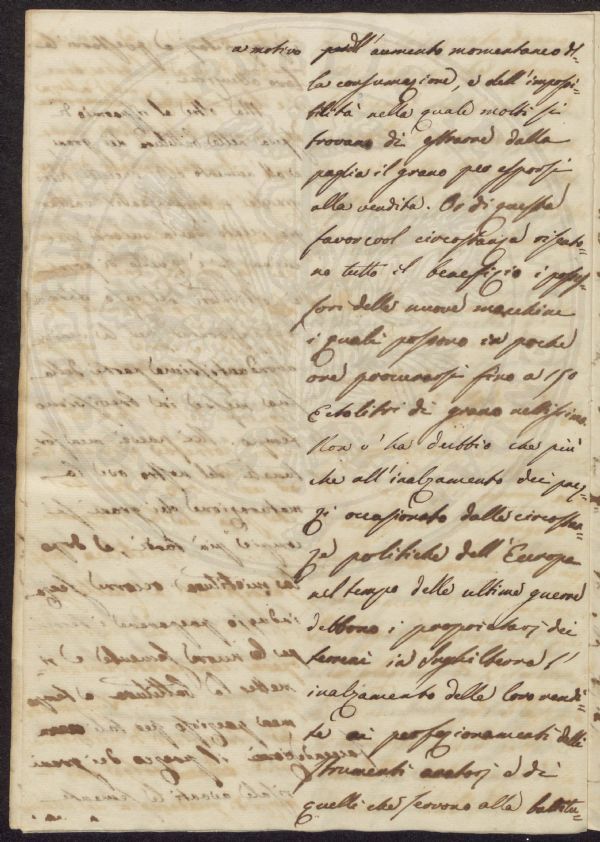 a motivo dell'aumento momentaneo di-
la consumazione, e dell'impossi-
bilità nella quale molti si
trovano di estraere dalla
paglia il grano per esporsi
alla vendita. Or di questa
favorevol circostanza risento-
no tutto il beneficio i posses-
sori delle nuove macchine
i quali possono in poche
ore procurarsi fino a 150
Ectolitri di grano nettissimo.
Non v'ha dubbio che più
che all'inalzamento dei prez-
zi occasionato dalle circostan-
ze politiche dell'Europa
nel tempo delle ultime guerre
debbono i proprietarj dei
terreni in Inghilterra l'
inalzamento delle loro rendi-
te ai perfezionamenti delli
strumenti aratorj e di
quelli che servono alla battitu-